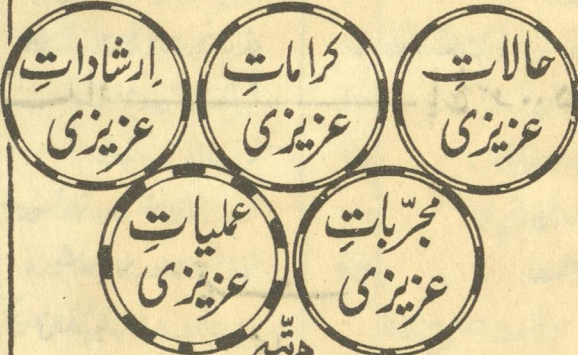 حالاتِ
عزیزی
کراماتِ
عزیزی
اِرشاداتِ
عزیزی
مجرّباتِ
عزیزی
عملیاتِ
عزیزی